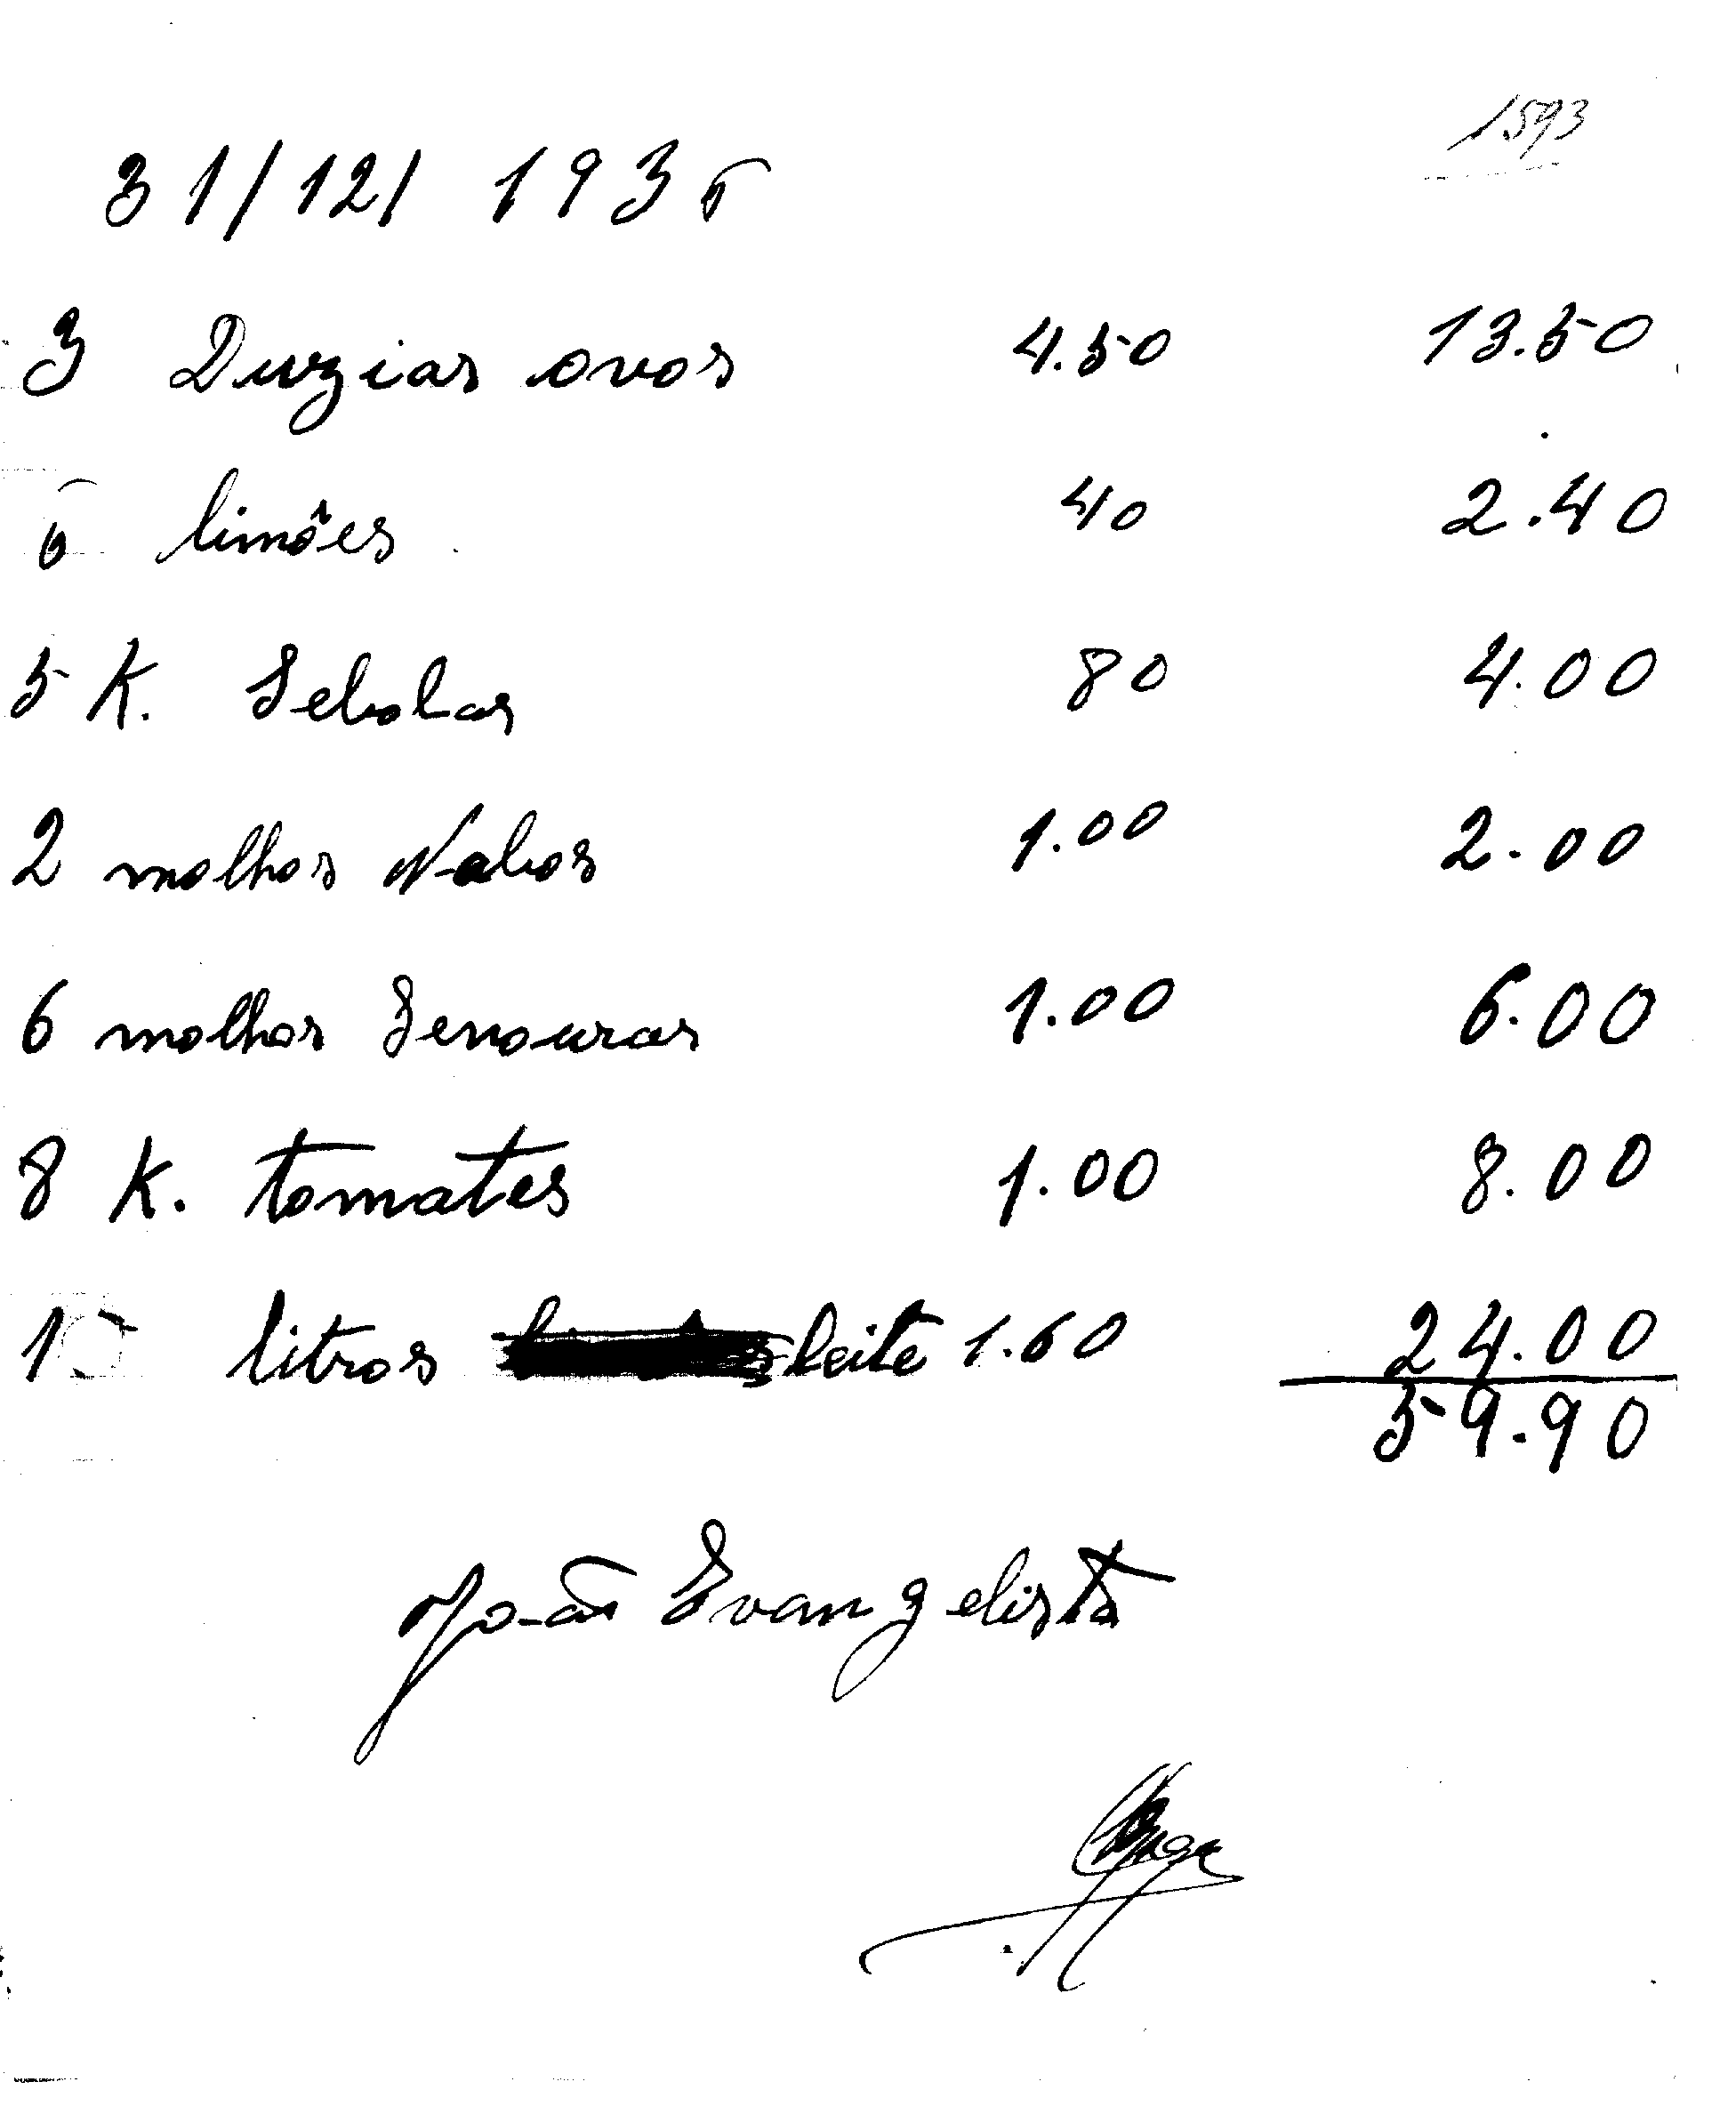 1593
31/12/ 1936
3 Duzias ovos 4.50 13.50
6 limões 40 2.40
5 K. Sebolas 80 4.00
2 molhos Nabos 1.00 2.00
6 molhos Senouras 1.00 6.00
8 K. tomates 1.00 8.00
15 litros leite 1.60 24.00
59.90
João Evangelista